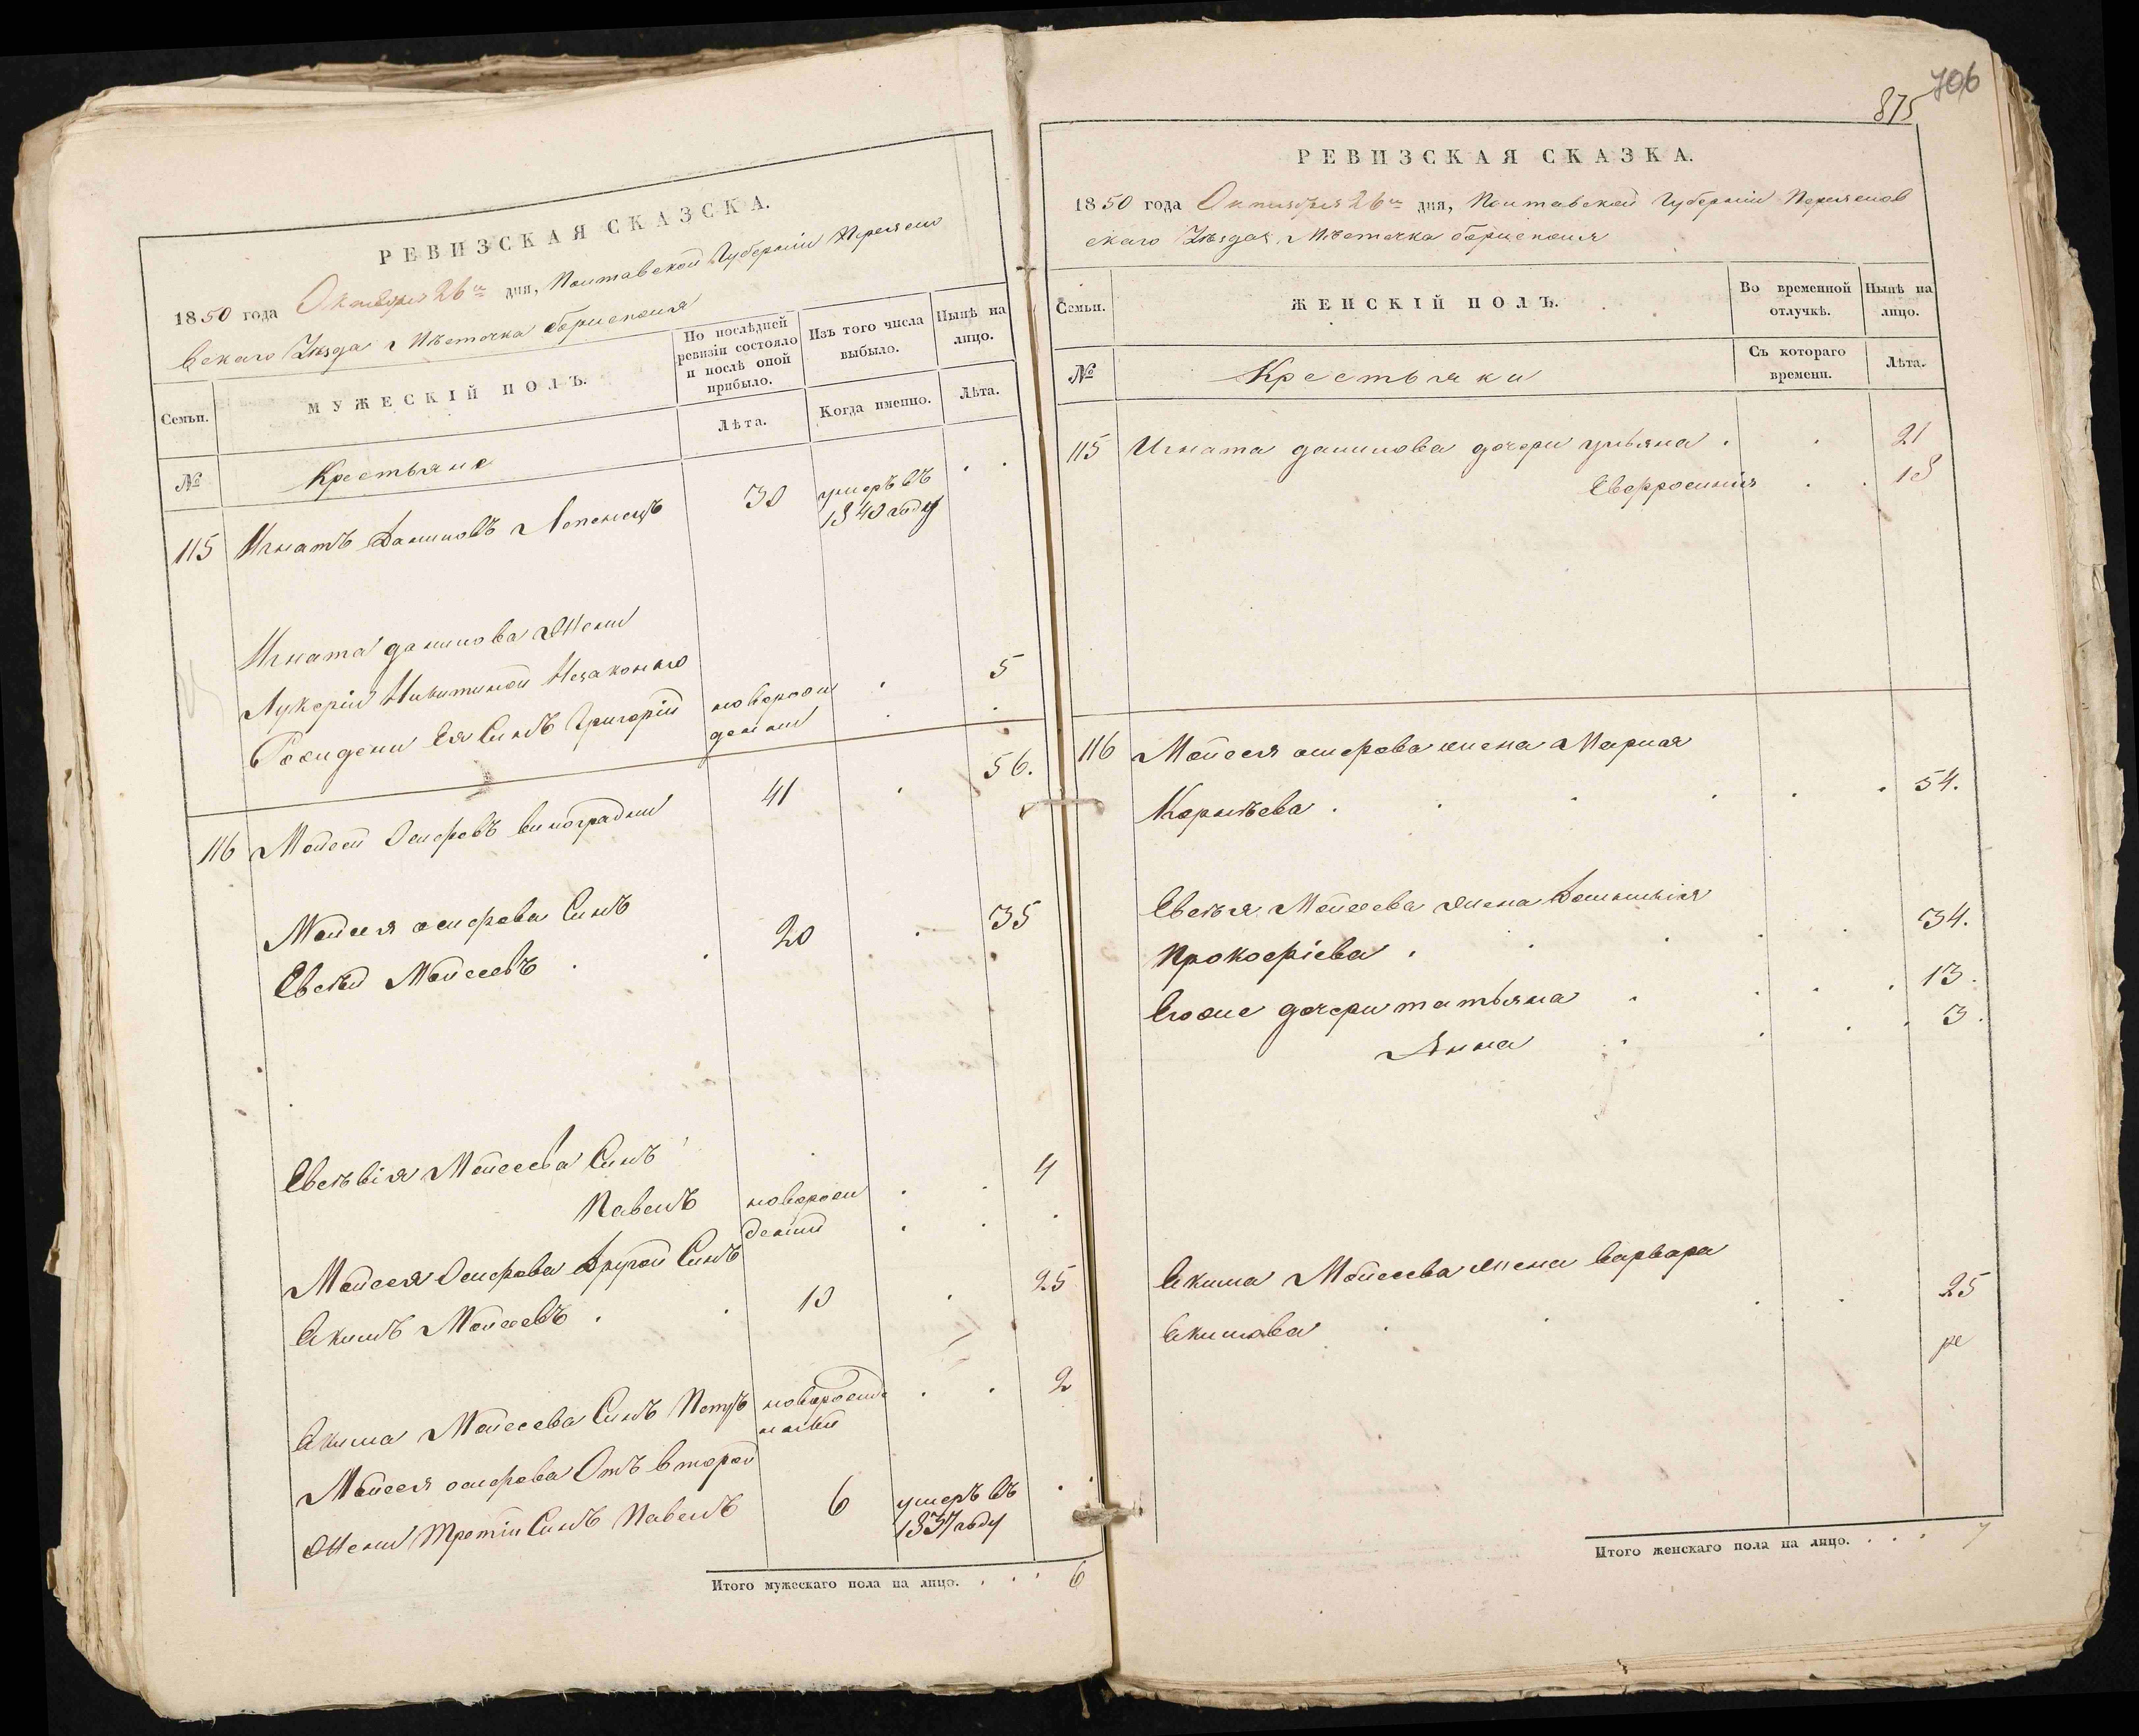 РЕВИЗСКАЯ СКАЗСКА.
1850 года Октября 26го дня, Полтавской Губерніи Переясла
вскаго Уѣзда Мѣстечка борисполя
Семьи.
МУЖЕСКІЙ ПОЛЪ.
По послѣдней ревизіи состояло и послѣ оной прибыло.
Изъ того числа выбыло.
Нынѣ на лицо.
№
Крестьяне
Лѣта.
Когда именно.
Лѣта.
115 Игнатъ Даниловъ 30 умеръ въ
1840 году
Игната данилова Жени
Лукеріи Никитиной Незаконо
Рожденн Ея Синъ Григорій новорож 5
денни
116 Мойсей Осиповъ виноградни 41 56.
Мойсея осипова Синъ
Евсѣй Мойсеевъ 20 35
Евсѣвія Мойсеева Синъ
Павелъ новорож 4
дении
Мойсея Осипова Другой Синъ
Екимъ Мойсеевъ 10 25
Екима Мойсеева Синъ Петръ новорожд 2
Мойсея осипова Отъ второй
Жени Третіи Синъ Павелъ 6 умеръ въ
1837 году
Итого мужескаго пола на лицо. . . . 6
706
875
РЕВИЗСКАЯ СКАЗКА.
1850 года Октября 26го дня, Полтавской Губерніи Переяслов
скаго Уѣзда, Мѣстечка борисполя
Семьи.
ЖЕНСКІЙ ПОЛЪ.
Во временной отлучкѣ.
Нынѣ на лицо.
№
Крестьянки
Съ котораго времени.
Лѣта.
115 Игната данилова дочери ульяна 21
Евфросинія 18
116 Мойсея осипова жена Мария
Корнѣева 54.
Евсѣя Мойсеева жена
Прокофіева 34.
Егоже дочери татьяна 13.
Анна 3.
Екима Мойсеева жена варвара
Екимова 25
Итого женскаго пола на лицо. . . . 7